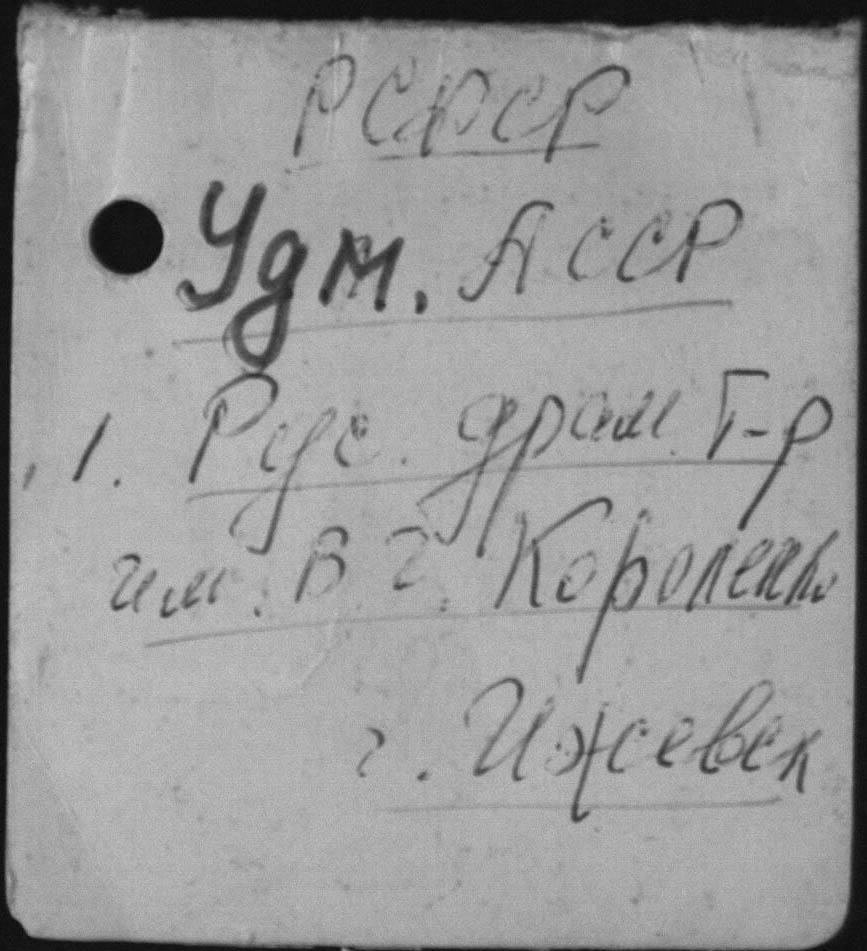 РСФСР
Удм. АССР
1. Рус. драм. Т-р
им. В Г. Короленко
г. Ижевск